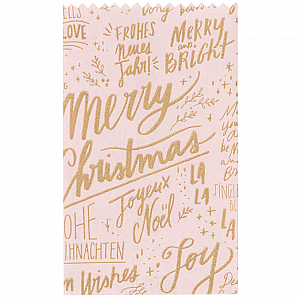 LOVE
FROHES
neues
Jahr!
MERRY
and
BRIGHT
Merry
Christmas
Joyeux
Noël
LA
LA
LA
JINGLE
OHE
EIHNACHTEN
Wishes
Joy